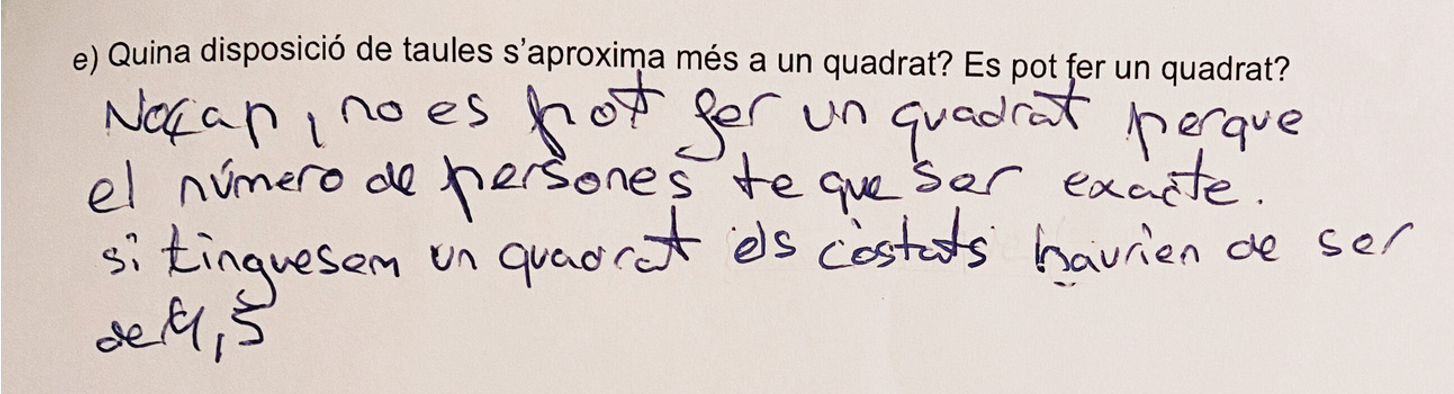 e) Quina disposició de taules s'aproxima més a un quadrat? Es pot fer un quadrat?
No cap, no es pot fer un quadrat perque
el número de persones te que ser exacte.
si tinguesem un quadrat els costats haurien de ser
de 4,5